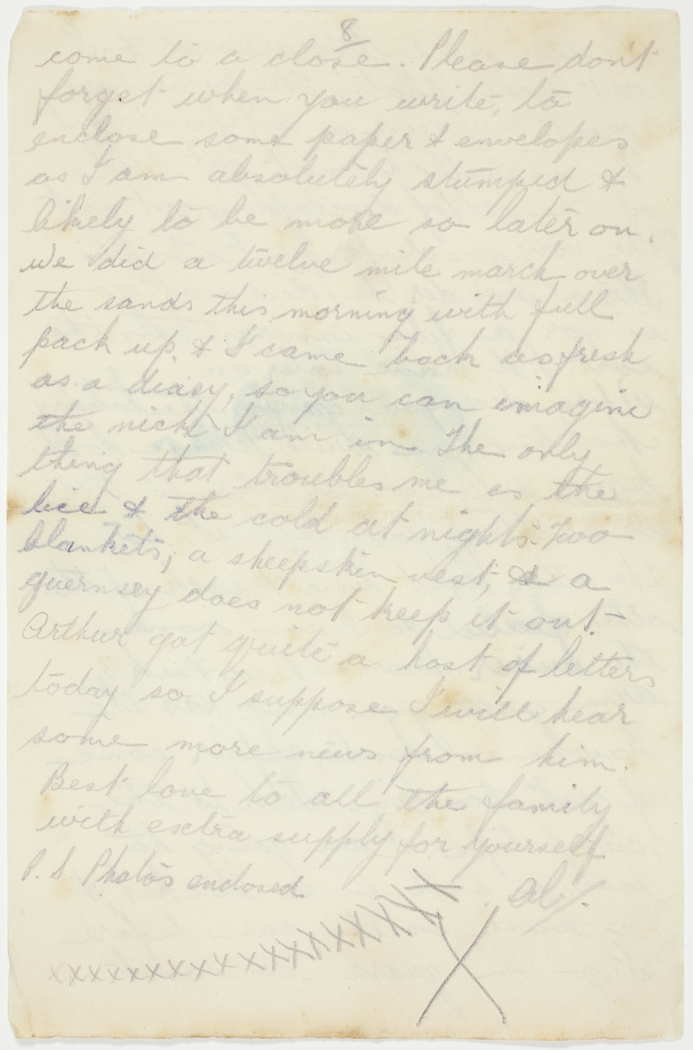 8
come to a close. Please don't
forget when you write, to
enclose some paper & envelopes
as I am absolutely stumped &
likely to be more so later on.
We did a twelve mile march over
the sands this morning with full
pack up, & I came back as fresh
as a diasy, so you can imagine
the nick I am in. The only
thing that troubles me is the
lice & the cold at nights. Two
blankets, a sheepskin vest, & a
guernsey does not keep it out.
Arthur got quite a host of letters
today so I suppose I will hear
some more news from him.
Best love to all the family
with extra supply for yourself
P.S Photos enclosed
Al/.
xxxxxxxxxxxxxxxxxxx X